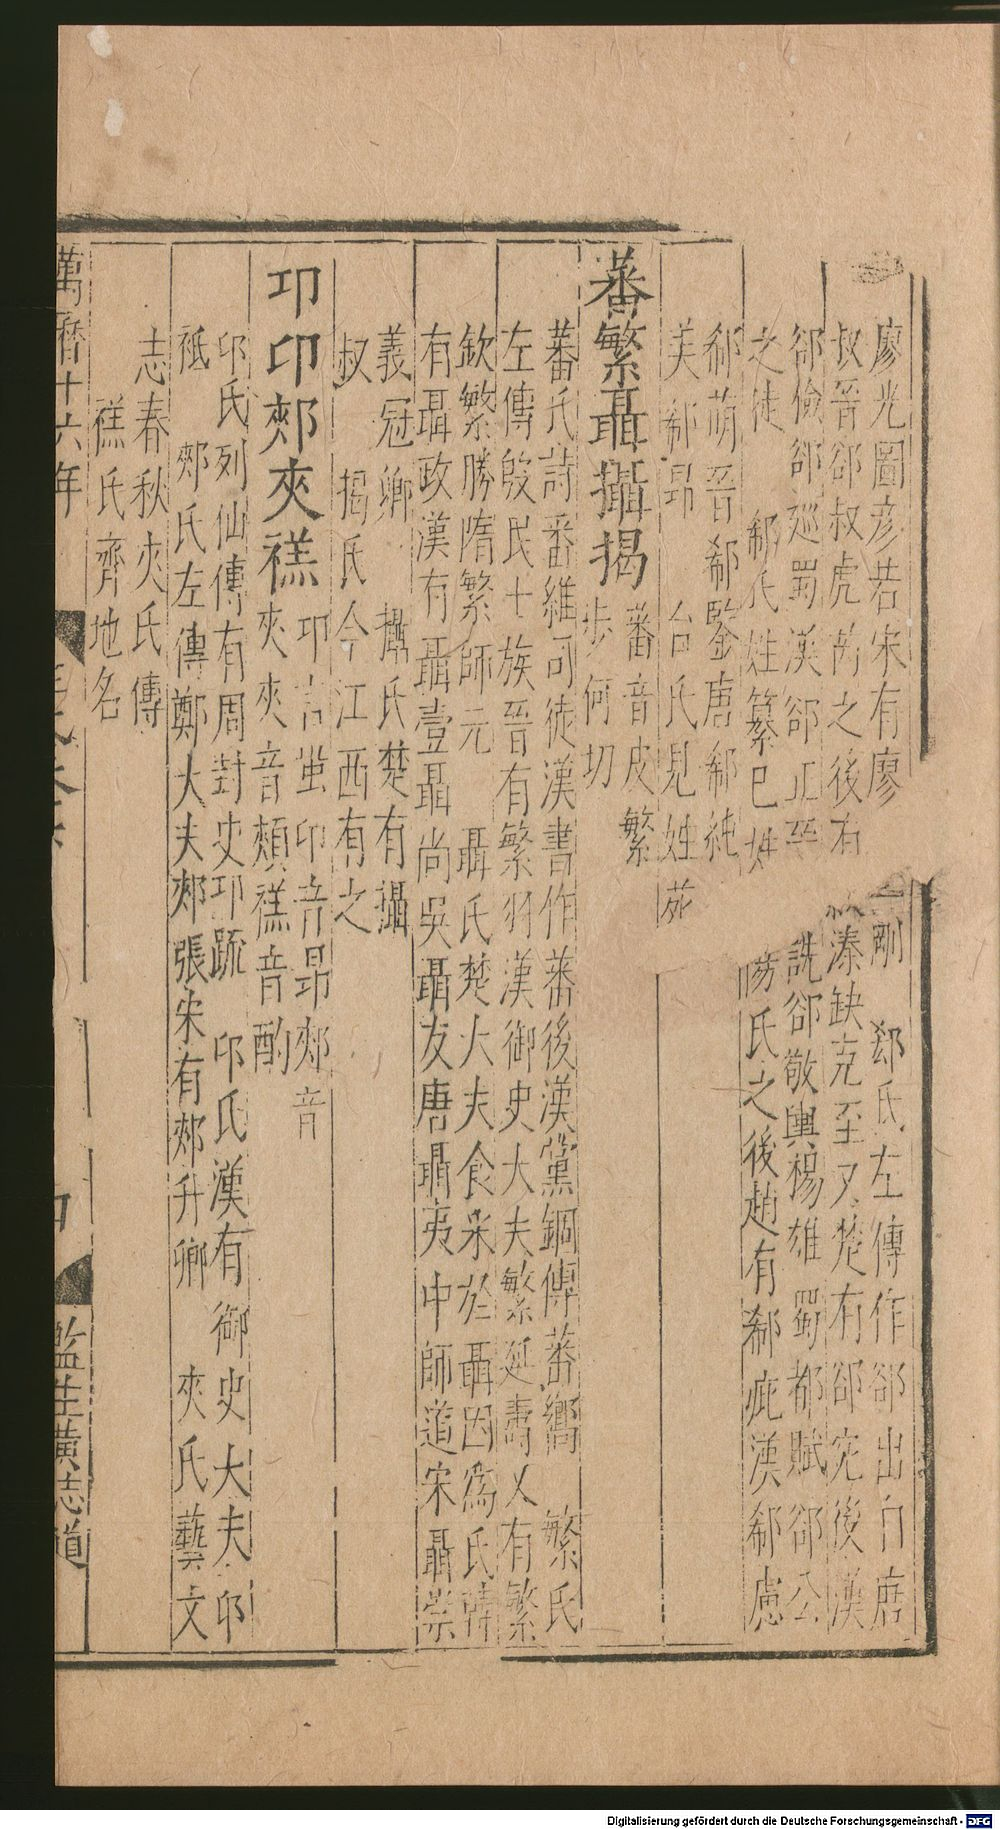 廖光圖彥若宋有廖　剛　郄氏左傳作郤出自唐
叔晉郤叔虎芮之後有　溱缺克至又楚有郤宛後漢
郤儉郤廵蜀漢郤正　詵郤敬輿楊雄蜀都賦郤公
之徒　郗氏姓纂巳姓　氏之後趙有郗疵漢郗慮
郗萌晉郗鑒唐郗純
美郗昂　台氏見姓苑
蕃繁聶攝揭
蕃音皮繁
步何切
蕃氏詩番維司徒漢書作蕃後漢黨錮傳蕃嚮　繁氏
左傳殷民七族晉有繁羽漢御史大夫繁延壽又有繁
欽繁勝隋繁師元　聶氏楚大夫食采於聶因爲氏韓
有聶政漢有聶壹聶尚吳聶友唐聶夷中師道宋聶崇
義冠卿　攝氏楚有攝
叔　揭氏今江西有之
邛卬郟夾禚
邛音蛩卬音昂郟音
夾夾音頰禚音酌
邛氏列仙傳有周封史邛疏　卬氏漢有御史大夫卬
祗　郟氏左傳鄭大夫郟張宋有郟升卿　夾氏藝文
志春秋夾氏傳
禚氏齊地名
萬曆十六年
監生黃志道
Digitalisierung gefördert durch die Deutsche Forschungsgemeinschaft - DFG